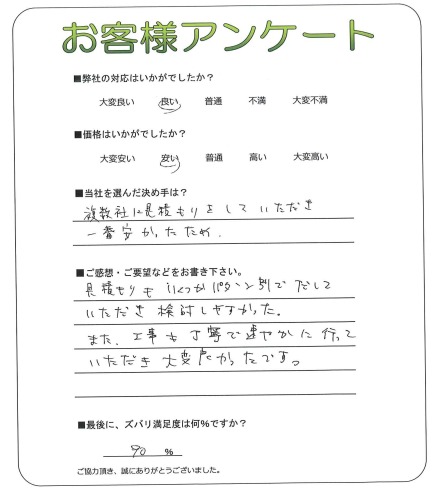 お客様アンケート
■弊社の対応はいかがでしたか?
大変良い 良い 普通 不満 大変不満
■価格はいかがでしたか?
大変安い 安い 普通 高い 大変高い
■当社を選んだ決め手は?
複数社に見積もりをして いただき
一番安かったため.
■ご感想・ご要望などをお書き下さい。
見積もりも いくつかパタン別で だして
いただき 検討しやすかった。
また、工事も丁寧で速やかに行って
いただき 大変良かったです。
■最後に、ズバリ満足度は何%ですか?
90 %
ご協力頂き、誠にありがとうございました。